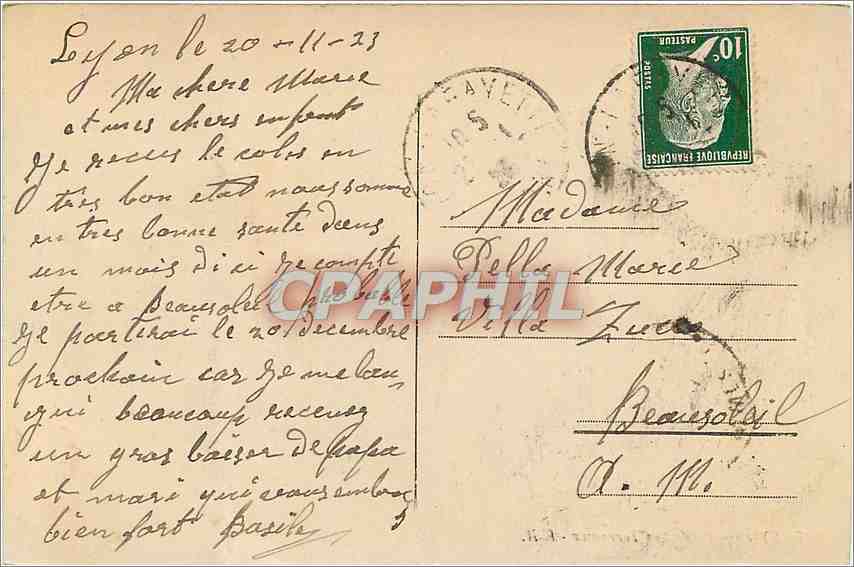 Lyon le 20-11-23
Ma chere Marie
et mes chers enfent
Je recus le colis en
tres bon etat nous somme
en tres bonne santé dans
un mois di ci je compte
etre a Beausoleil probable
Je partirai le 20 decembre
prochain car je me lan-
gui beaucoup recevez
un gros baiser de papa
et mari qui vous embras
bien fort Basile
10c
PASTEUR
POSTES
REPUBLIQUE FRANÇAISE
Madame
Pella Marie
Villa
Beausoleil
A. M.
CPAPHIL